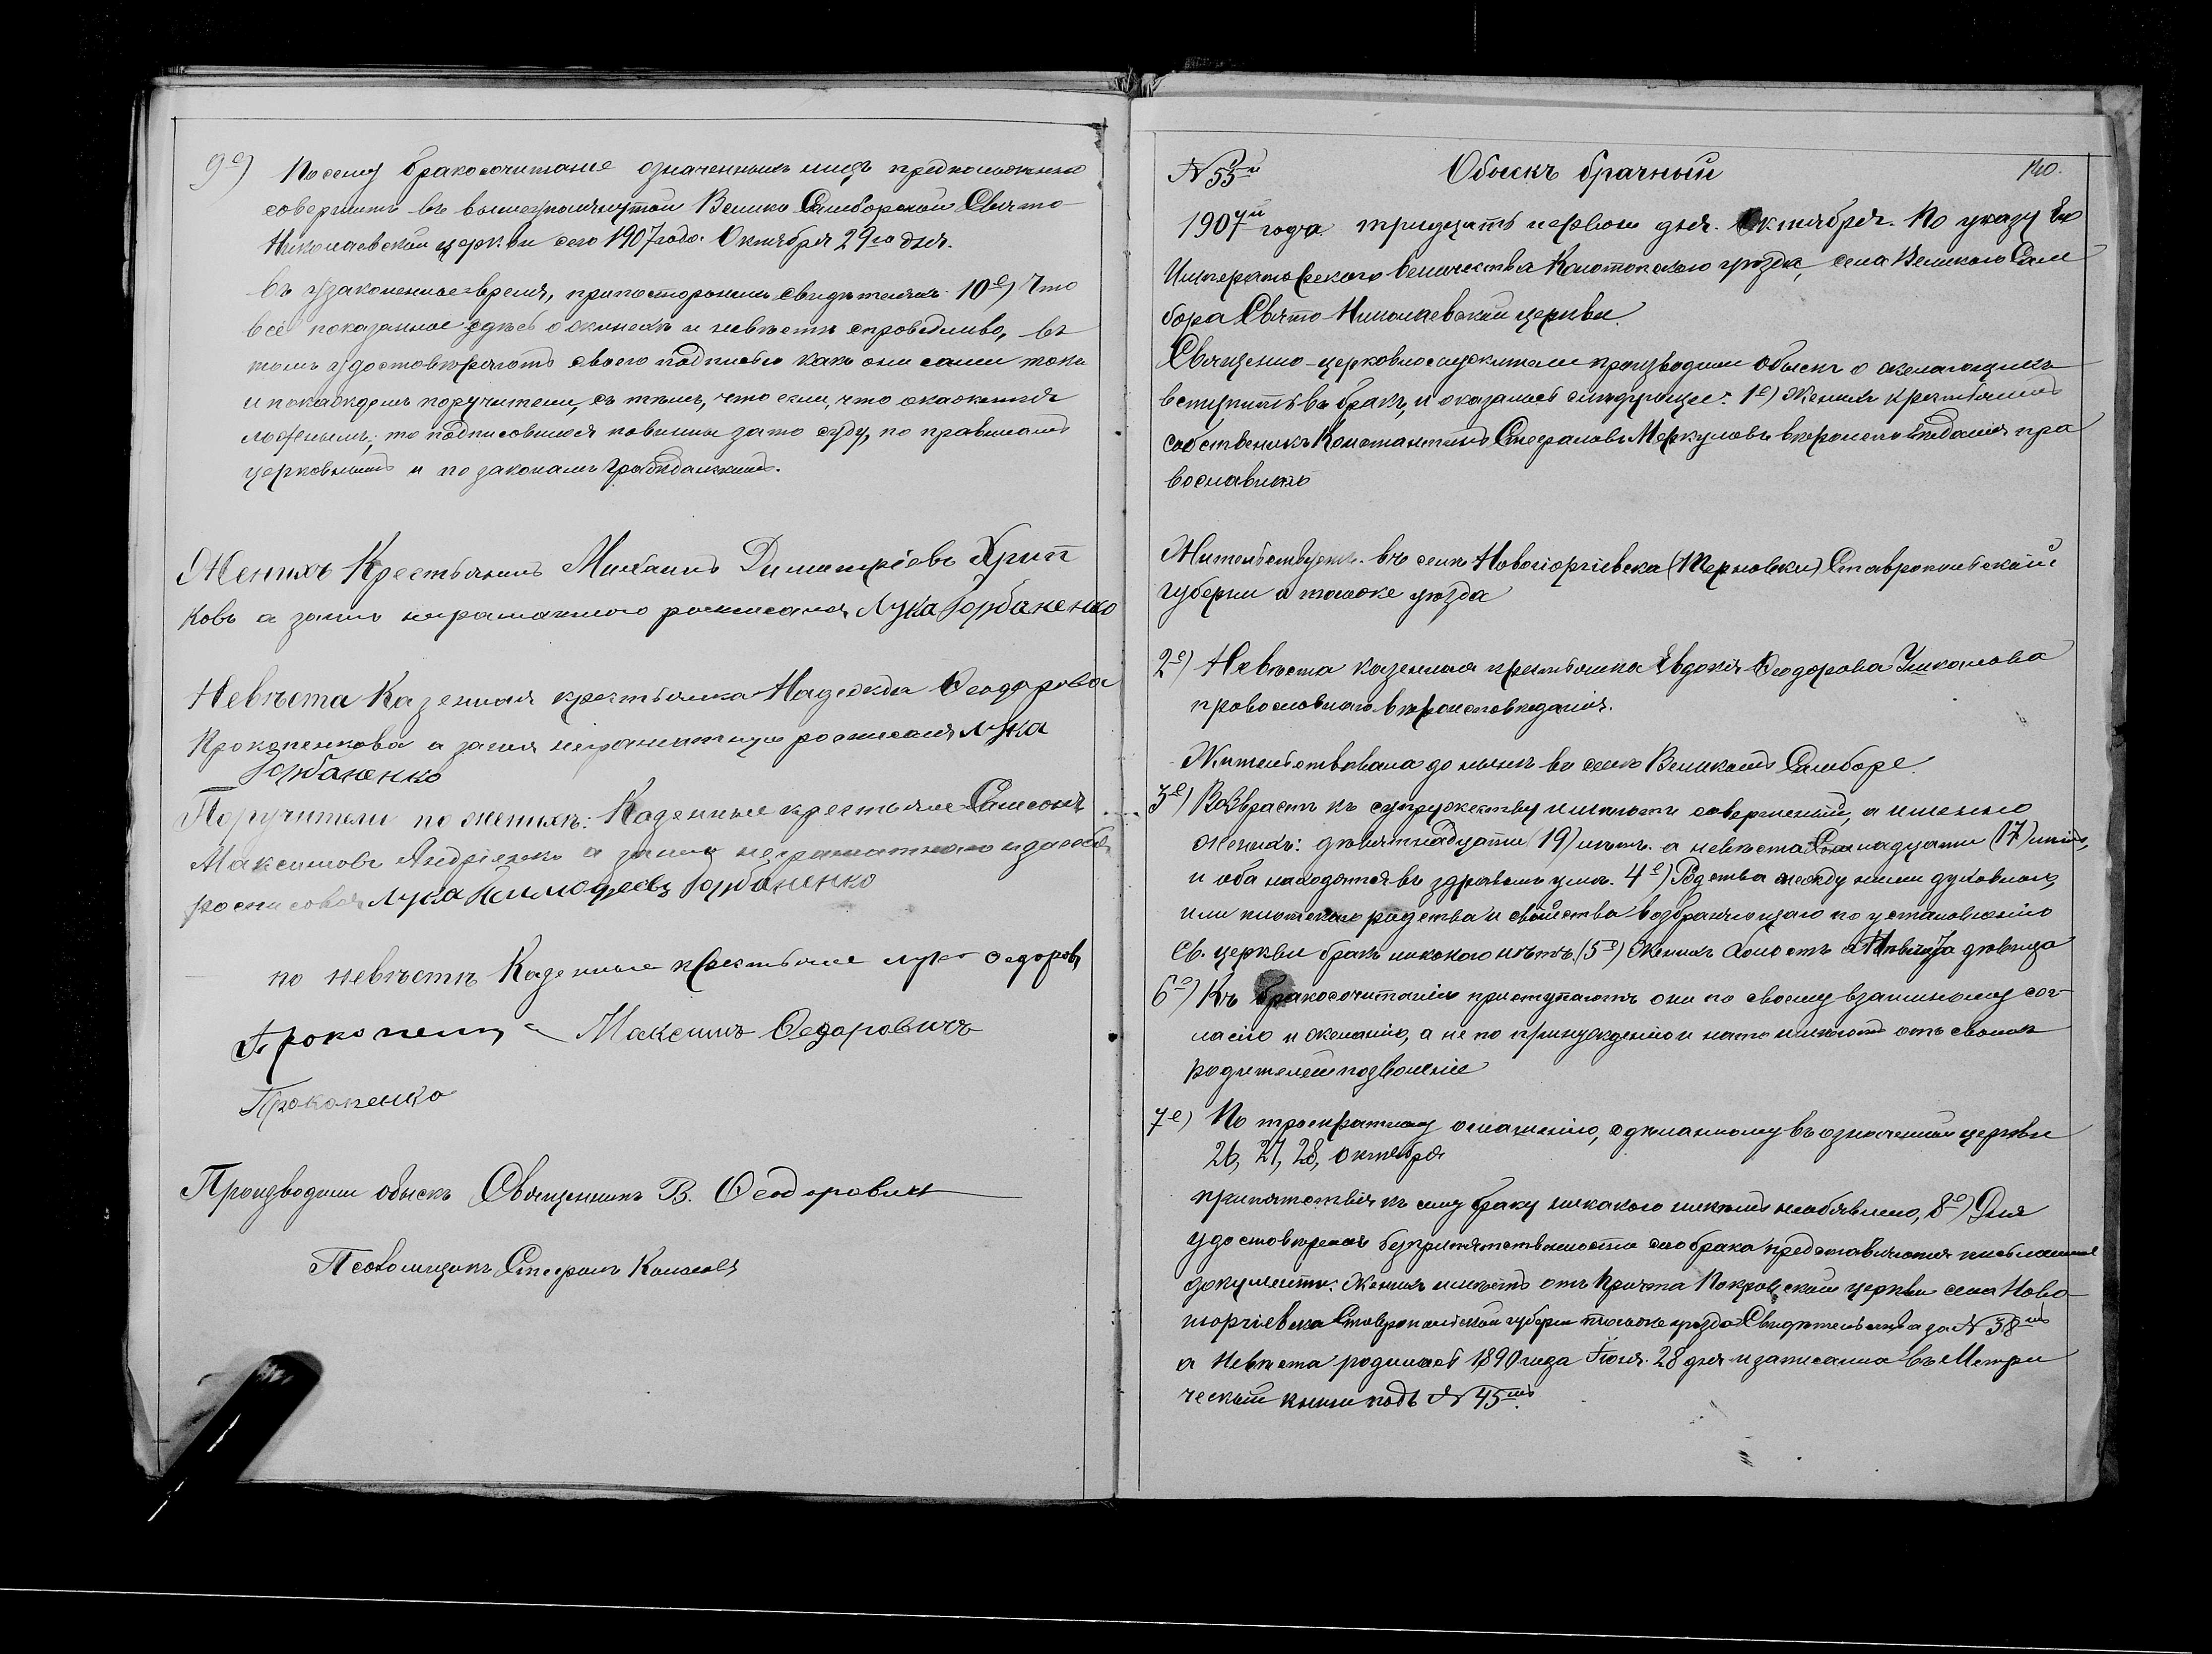 9е) Посему бракосочитание означенныхъ лицъ предположено
совершить въ вышеупомянутой Велико Самборской Свято-
Николаевской церкви сего 1907 года. Октября 29го дня.
въ узаконенное время, при постороннихъ свидѣтеляхъ 10е) Что
всё показанное здѣсь о женихѣ и невѣстѣ справедливо, въ
томъ удостовѣряютъ своею подписью какъ они сами такъ
и по каждомъ поручители, съ тѣмъ, что если, что окажется
ложнымъ; то подписовшіеся повинны за то суду, по правиламъ
церковнымъ и по законамъ гражданскимъ.
Женихъ Крестьянинъ Михаилъ Димитріевъ Хрип
ковъ а занего неграмотного росписался Лука Горбаненко
Невѣста Казенная крестьянка Надежда Ѳеодорова
Прокопенкова а занея неграмотную росписался Лука
Горбаненко
Поручители по женихѣ: Казенные крестьяне Самсонъ
Максимовъ Андріенко а занего неграмотного издесебя
росписовся Лука Тимофеевъ Горбаненко
по невѣстѣ Казенные крестьяне Лука Федоровъ
Прокопенко Максимъ Ѳедоровичъ
Прокопенко
Производили обыскъ Священникъ В. Ѳеодоровичъ
Псаломщикъ Стефанъ
№ 55й Обыскъ брачный 140.
1907й года тридцать первого дня. Октября. По указу Его
Императорского величества Конотопского уѣзда, села Великого Сам
бора Свято-Николаевской церкви.
Священно-церковнослужители производили обыскъ о желающихъ
вступить въ бракъ, и оказалось слѣдующее: 1е) Женихъ крестьянинъ
собственикъ Константинъ Стефановъ Меркуловъ вѣроисповѣданія пра
вославнаго
Жительствуетъ въ селѣ Новогіоргіевска (Терновки) Ставропольской
губерніи и тогоже уѣзда
2е) Невѣста казенная крестьянка Евдокія Ѳеодорова Ушкалова
провославнаго вѣроисповѣданія.
Жительствовала до нынѣ въ селѣ Великомъ Самборе.
3е) Возврастъ къ супружеству имѣютъ совершенный, а именно
женихъ: девятнадцати (19) лѣтъ. а невѣста Семнадцати (17) лѣтъ,
и оба находятся въ здравомъ умѣ. 4е) Родства между ними духовного,
или плотского родства и свойства возбраняющаго по установленію
Св. церкви бракъ никакого нѣтъ. (5е) Женихъ холостъ а Невѣста дѣвица
6е) Къ бракосочитанію приступаютъ они по своему взаимному сог-
ласію и желанію, а не по принужденію и нато имѣютъ отъ своихъ
родителей позволеніе
7е) По троекратному оглашенію, сдѣланному въ означенной церкви
26, 27, 28, Октября
препятствія къ сему браку никакого никѣмъ необявлено, 8е) Для
удостовѣренія безпрепятственности сего брака представляются письменные
документы. Женихъ имѣетъ отъ Причта Покровской церкви села Ново-
гіоргіевска Ставропольской губерніи тогоже уѣзда Свидѣтельства за № 38мъ
а Невѣста родилась 1890 года Іюля 28 дня и записана въ Метри
ческой книги подъ № 45мъ.